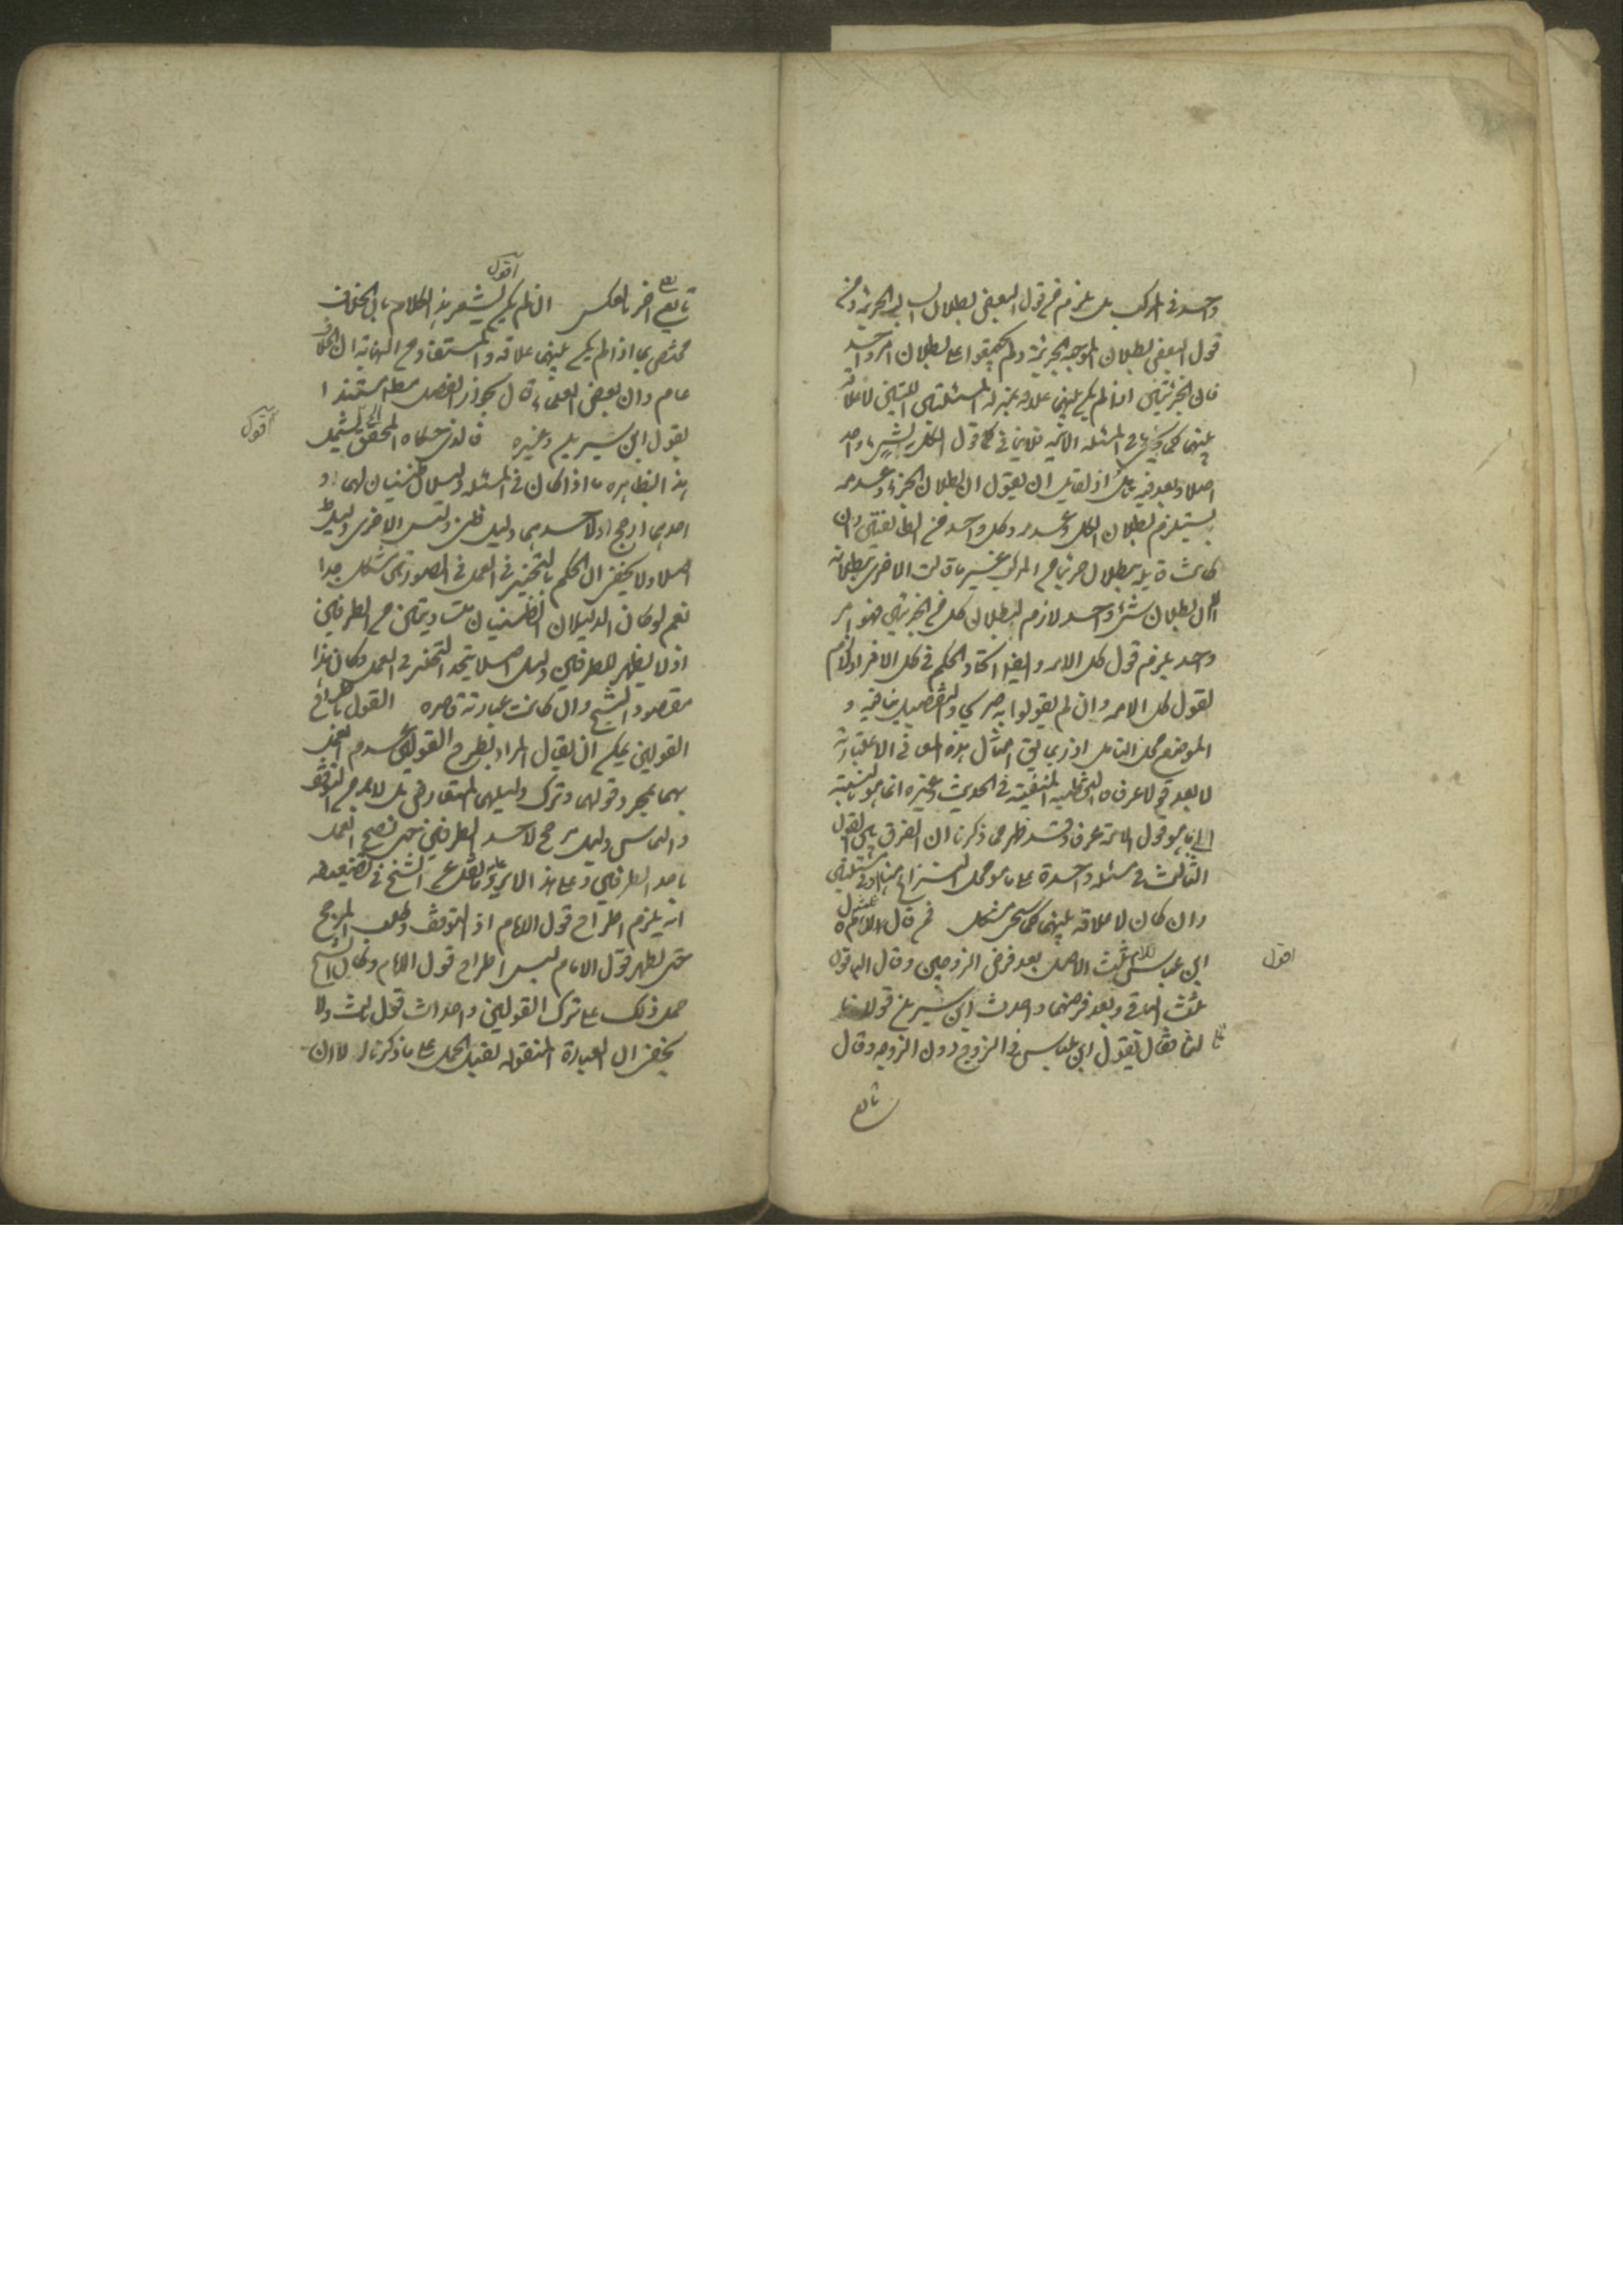 واحد في المركب بل يلزم من قول البعض بطلان السالبة الجزئية ومن
قول البعض بطلان الموجبة الجزئية ولم يتفقوا على بطلان امر واحد
فان الجزئيتين اذا لم يكن بينهما علاقة بمنزلة المسئلتين اللتين لا علاقة
بينهما كما في المسئلة الاتية فلا يفي قول الكل بشيء واحد
اصلا وبعد فيه تأمل اذ لقايل ان يقول ان بطلان الجزء وعدمه
يستلزم بطلان الكل وعدمه وكل واحد من الطائفتين وان
كانت قايلة ببطلان جزء من المركب غير ما قالت الاخرى ببطلانه
الا ان بطلان شيء واحد لازم لبطلان كل من الجزئين فهو امر
واحد يلزم قول كل الامة وايضا اتحاد الحكم في كل الافراد لازم
لقول كل الامة وان لم يقولوا به صريحا والتفصيل ينافيه و
الموضع محل التأمل اذ ربما يق امثال هذه في الاعتبارية
لا يعد في العرف المنفية في الحديث وغيره انما هو بالنسبة
الى ما هو قول الائمة عرفا وقد ظهر مما ذكرنا ان الفرق بين القول
الثالث في مسئلة واحدة على ما هو محل النزاع هنا وفي مسئلتين
وان كان لا علاقة بينهما كما سيجئ مشكل فمن قال للام
ابن عباس للام ثلث الاصل بعد فرض الزوجين وقال الباقون
ثلث الباقي بعد فرضهما واحدث ابن سيرين قولا ثا
لثا فقال بقول ابن عباس في الزوج دون الزوجة وقال
تابعي
اقول
تابعي اخر بالعكس ان لم يكن يشعر هذا الكلام بان الخلاف
اقول
مختص بما اذا لم يكن بينهما علاقة والمستفاد من النهاية ان الخلاف
عام وان بعض العلماء قال بجواز الفصل مطلقا مستندا
بقول ابن سيرين وغيره فالذي حكاه المحقق يشمل
اقول
هذا بظاهره ما اذا كان في المسئلة دليلان ظنيان لهما او
احدهما ارجح او لاحدهما دليل ظني وليس للاخرى دليل
اصلا ولا يخفى ان الحكم بالتخيير في العمل في الصورتين مشكل جدا
نعم لو كان الدليلان الظنيان متساويين من الطرفين
اذ لا يظهر للطرفين دليل اصلا يتجه التخيير في العمل وكان هذا
مقصود الشيخ وان كانت عبارته قاصرة القول باطراح
القولين يمكن ان يقال المراد بطرح القولين عدم العمل
بهما بمجرد قولهما وترك دليلهما المتعارض بل لابد من التوقف
والتماس دليل مرجح لاحد الطرفين حتى يصح العمل
باحد الطرفين وعلى هذا لا يرد عليه ما نقل عن الشيخ في تضعيفه
انه يلزم اطراح قول الامام اذ التوقف وطلب المرجح
حتى يظهر قول الامام ليس اطراح قول الامام وكان الشيخ
حمل ذلك على ترك القولين واحداث قول ثالث ولا
يخفى ان العبارة المنقولة تقبل الحمل على ما ذكرنا لا ان